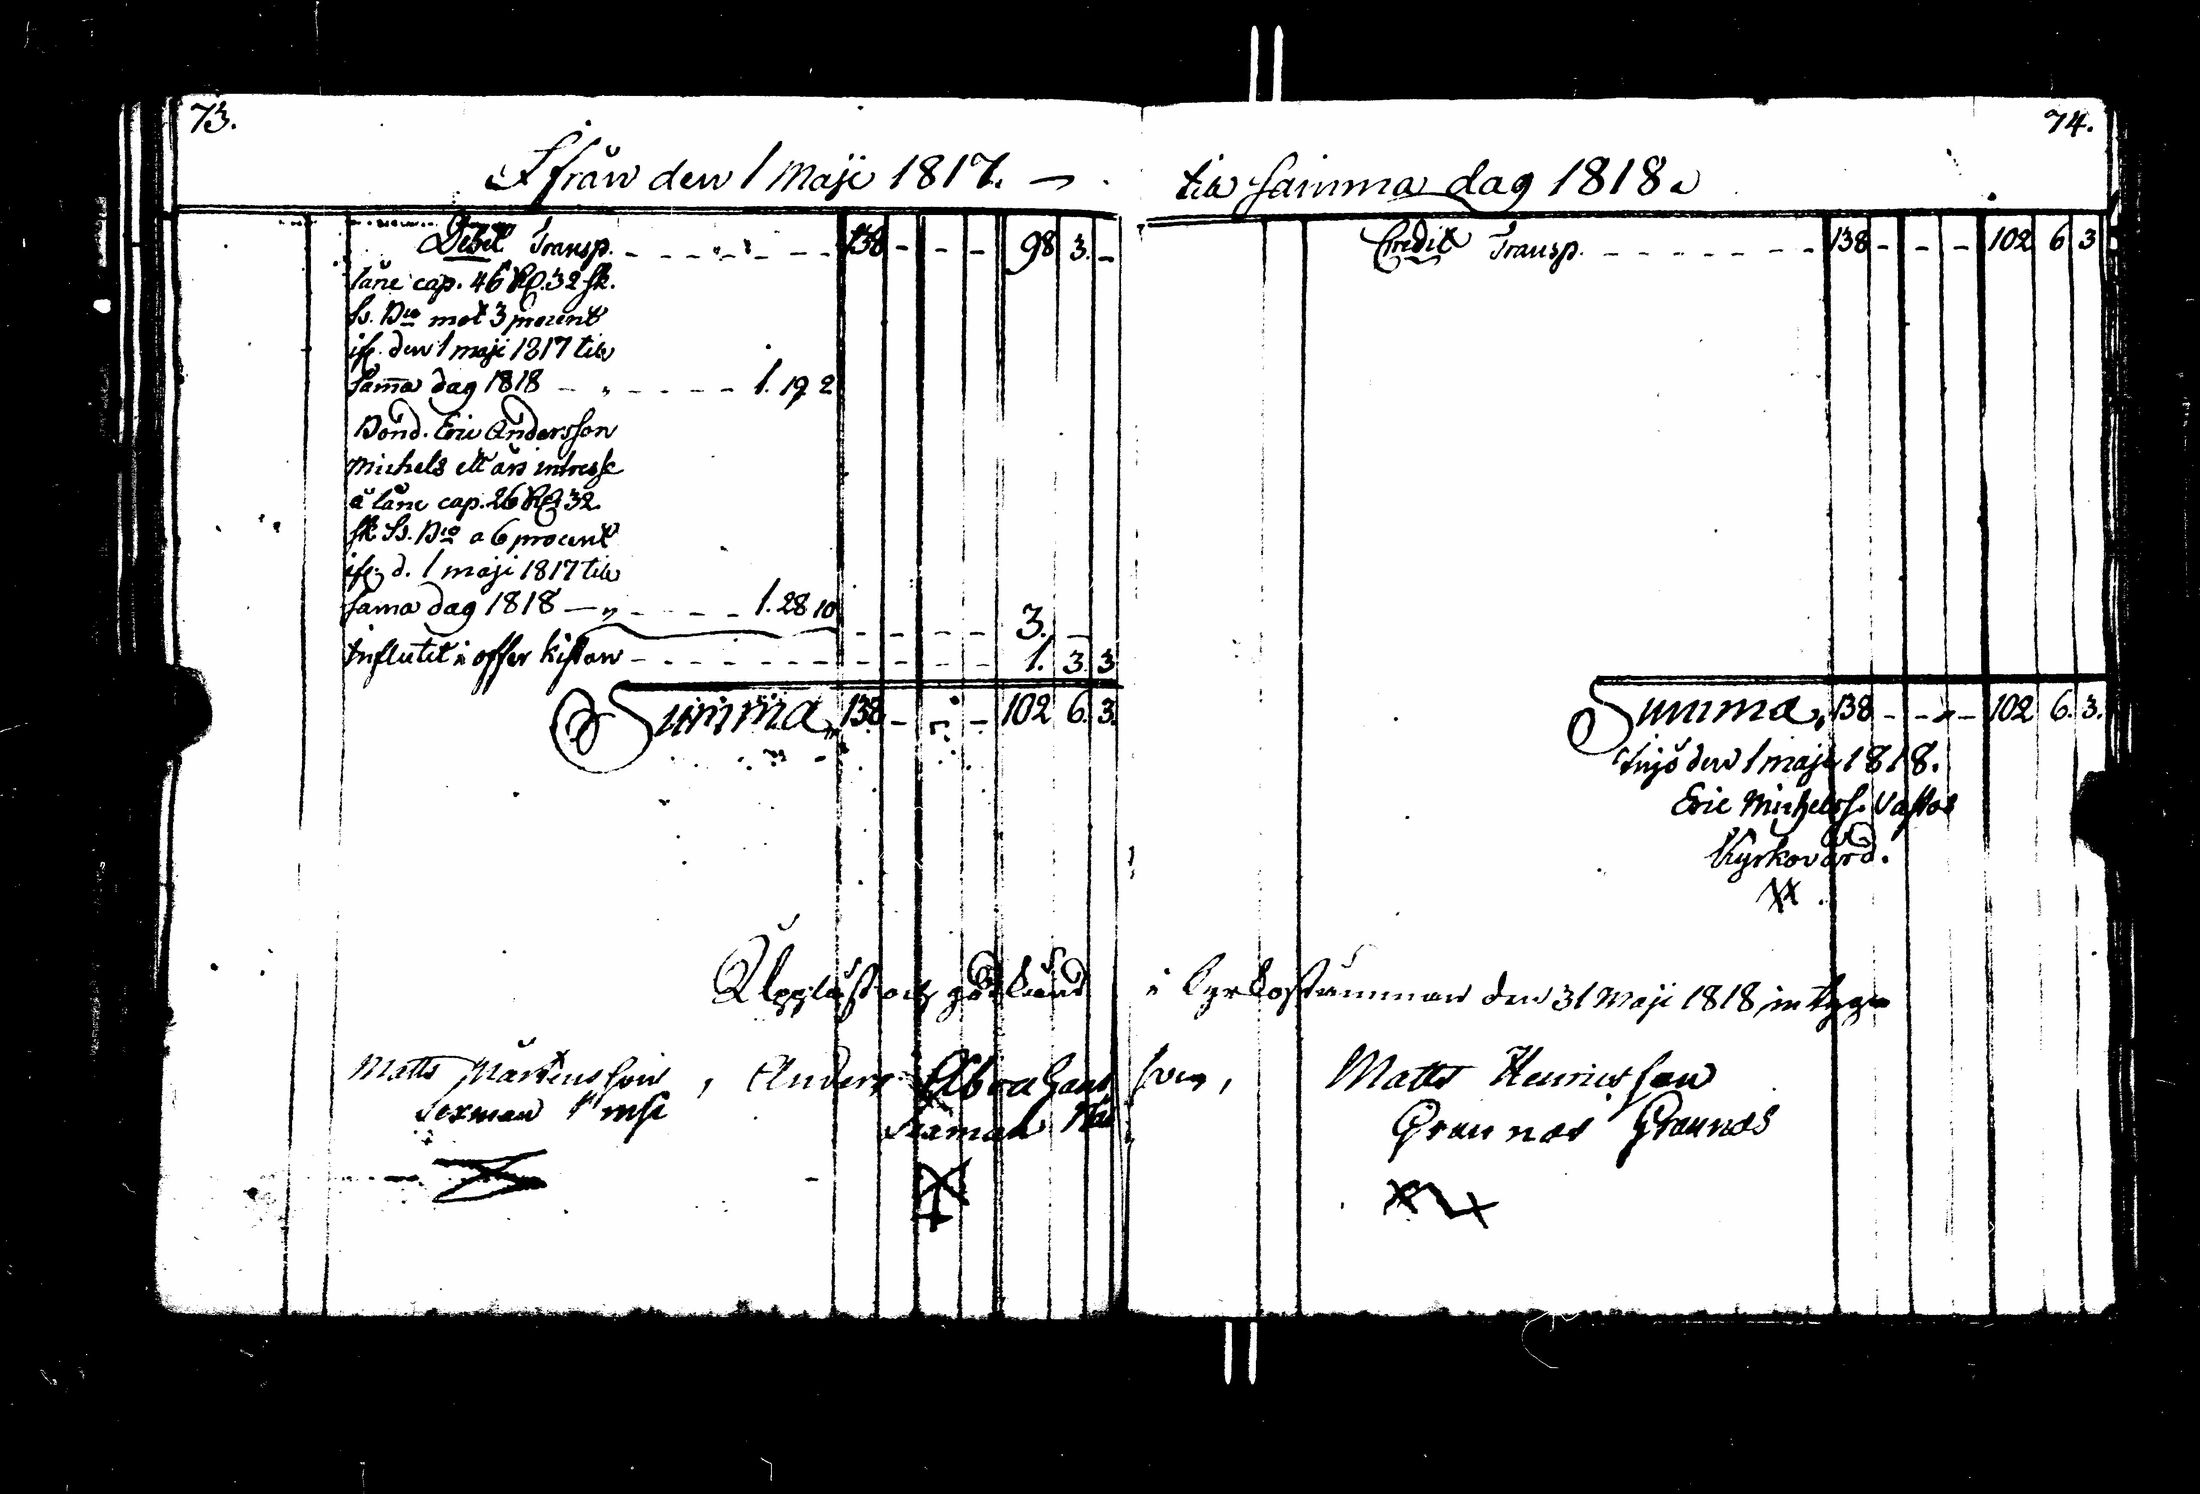 73.
Ifrån den 1 Maji 1817.
Debet Transp. 138 - - - 98 3. -
låne cap. 46 Rd. 32 sk.
Ss. Bco mot 3 procent
ifr. den 1 maji 1817 till
samma dag 1818 - - - - - 1. 19 2
Bond. Eric Andersson
Michels ett års intresse
å låne cap. 26 Rd 32
sk Ss. Bco a 6 procent
ifr. d. 1 maji 1817 till
sama dag 1818 - - - - 1. 28 10
- - - - 3. -
Influtit i offer kistan - - - - - - - - - 1. 3 3
Summa, 138 - - - 102 6. 3.
74.
till samma dag 1818.
Credit Transp. - - - - - - - 138 - - - 102 6 3
Summa, 138 - - - 102 6. 3.
den 1 maji 1818.
Eric Michelss.
Kyrkovärd.
Uppläst och godkänd i kyrkostämman den 31 Maji 1818, intyga
Matts Mårtensson, Anders Abrahamsson, Matts Henricsson
Sexman Sexman Grannas Grannas